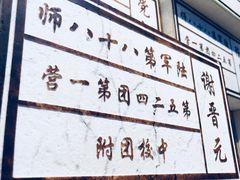 谢晋元
陆军第八十八师
第五二四团第一营
中校团附